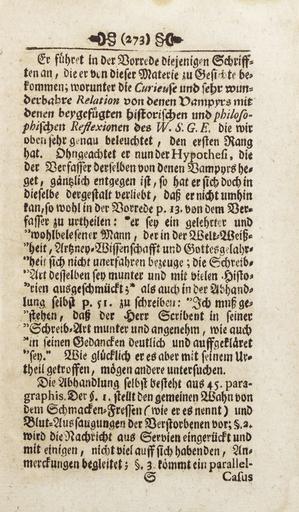 (273)
Er führet in der Vorrede diejenigen Schriff-
ten an, die er von dieser Materie zu Gesichte be-
kommen; worunter die Curieuse und sehr wun-
derbahre Relation von denen Vampyrs mit
denen beygefügten historischen und philoso-
phischen Reflexionen des W. S. G. E. die wir
oben sehr genau beleuchtet, den ersten Rang
hat. Ohngeachtet er nun der Hypothesi, die
der Verfasser derselben von denen Vampyrs he-
get, gäntzlich entgegen ist, so hat er sich doch in
dieselbe dergestalt verliebt, daß er nicht umhin
kan, so wohl in der Vorrede p. 13. von dem Ver-
fasser zu urtheilen: "er sey ein gelehrter und
"wohlbelesener Mann, der in der Welt-Weiß-
"heit, Artzney-Wissenschafft und Gottesgelahr-
"heit sich nicht unerfahren bezeuge; die Schreib-
"Art desselben sey munter und mit vielen Histo-
"rien ausgeschmückt;" als auch in der Abhand-
lung selbst p. 51. zu schreiben: "Ich muß ge-
"stehen, daß der Herr Scribent in seiner
"Schreib-Art munter und angenehm, wie auch
"in seinen Gedancken deutlich und aufgekläret
"sey." Wie glücklich er es aber mit seinem Ur-
theil getroffen, mögen andere untersuchen.
Die Abhandlung selbst besteht aus 45. para-
graphis. Der §. 1. stellt den gemeinen Wahn von
dem Schmacken-Fressen (wie er es nennt) und
Blut-Aussaugungen der Verstorbenen vor; §. 2.
wird die Nachricht aus Servien eingerückt und
mit einigen, nicht viel auff sich habenden, An-
merckungen begleitet; §. 3. kömmt ein parallel-
S Casus